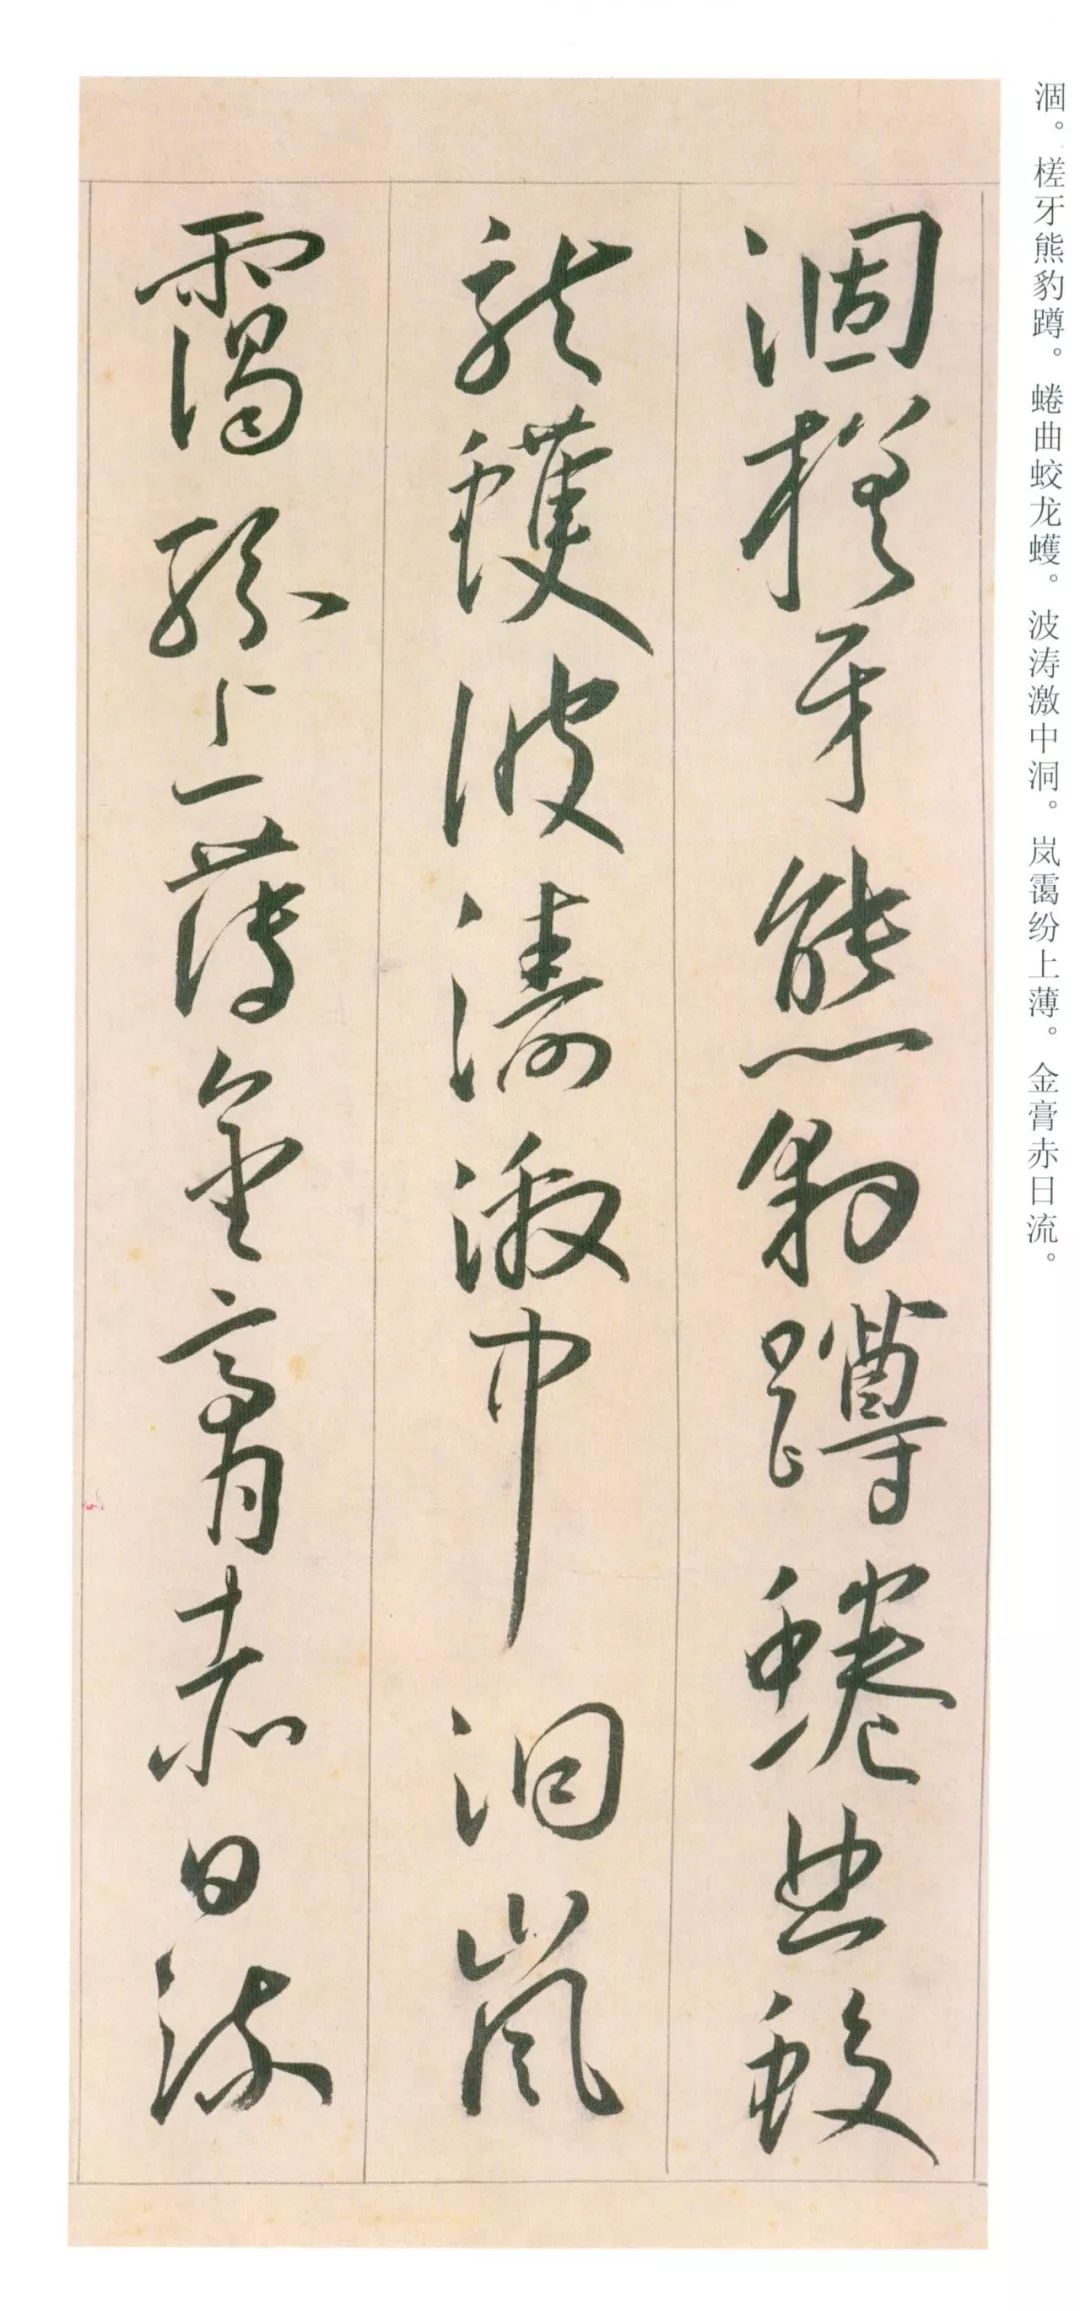 涸。槎牙熊豹蹲。蜷曲蛟龙蠖。波涛激中洞。岚霭纷上薄。金膏赤日流。
涸槎牙熊豹蹲蜷曲蛟
龍蠖波濤激中洞嵐
靄紛上薄金膏赤日流